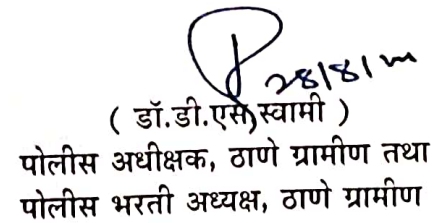 28/8/
( डॉ.डी.एस.स्वामी )
पोलीस अधीक्षक, ठाणे ग्रामीण तथा
पोलीस भरती अध्यक्ष, ठाणे ग्रामीण